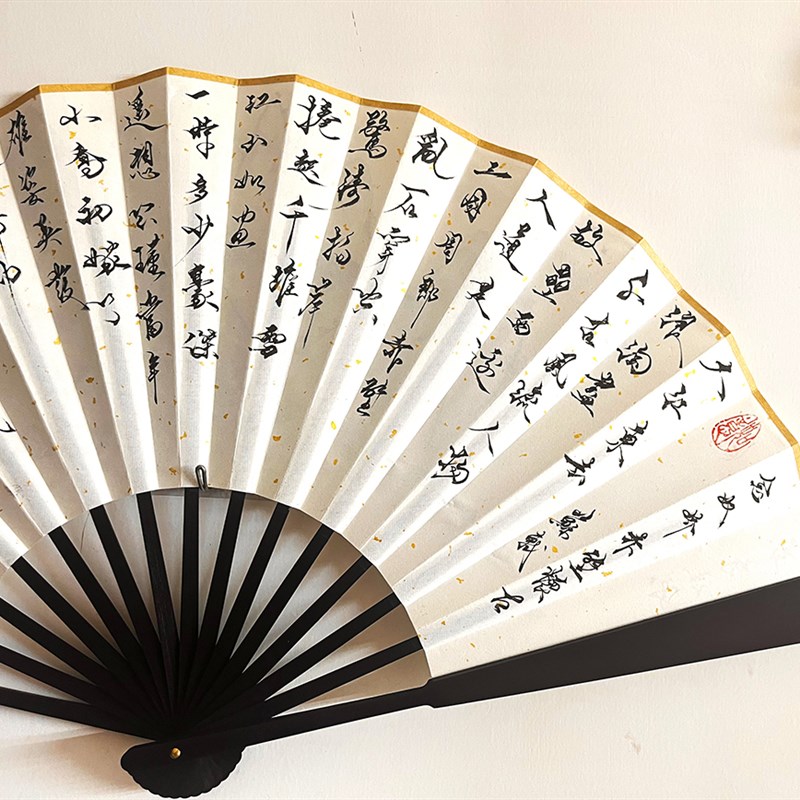 念奴娇 赤壁懷古
大江東去
浪淘盡
千古風流人物
故壘西邊
人道是
三國周郎赤壁
亂石穿空
驚濤拍岸
捲起千堆雪
江山如畫
一時多少豪傑
遙想公瑾當年
小喬初嫁了
雄姿英發